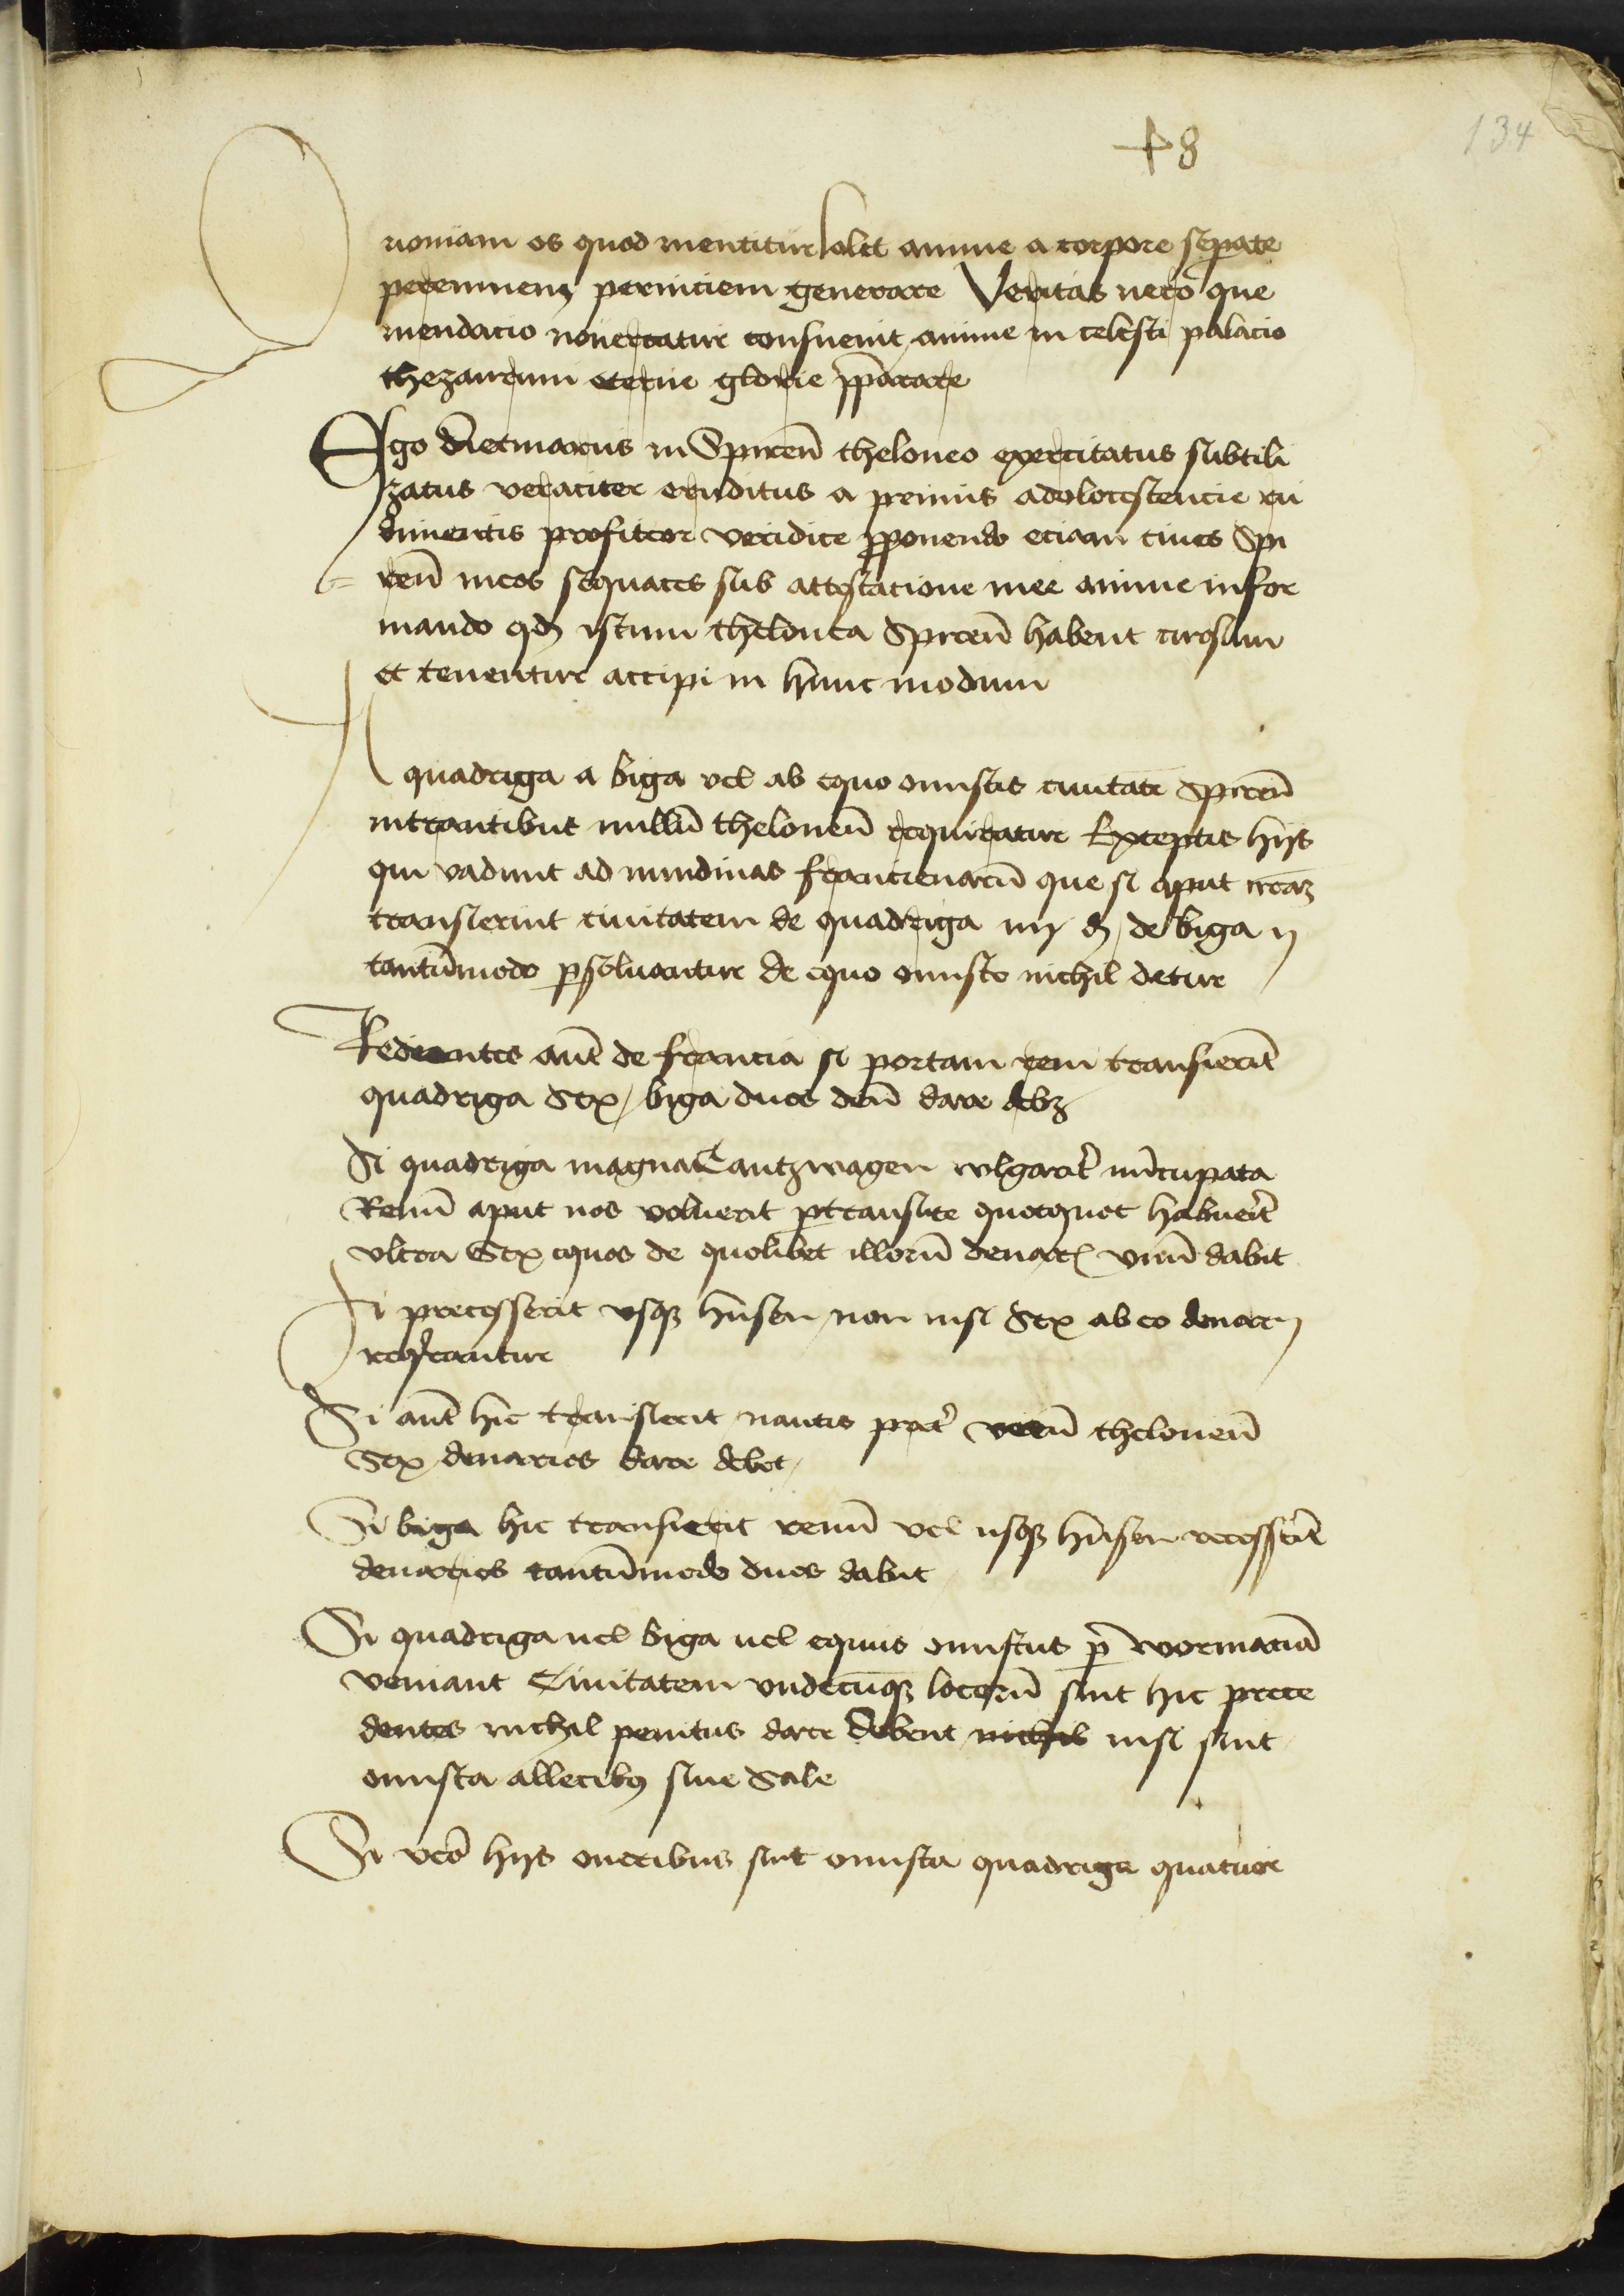 +8
134
Quoniam os quod mentitur solet anime a corpore sepate
perennem perniciem generare Veritas vero que
mendacio novercatur consuevit anime in celesti palacio
thezaurum eterne glorie pparare
Ego dietmarus in Spireñ theloneo exercitatus subtili
zatus veraciter eruditus a primis adolocescencie ru
dimentis profiteor veridice pponendo eciam cives Spi
reñ meos sequaces sub attestacione mee anime infor
mando qd istum thelonea Spireñ habent cursum
et tenentur accipi in hunc modum
A quadriga a biga vel ab equo onustis civitatē Spireñ
intrantibus nullū theloneū requiratur Exceptis hijs
qui vadunt ad nundinas francienariū que si aput
transierint civitatem de quadriga iiij d, de biga ij
tantūmodo psolvantur de equo onusto nichil detur
Redeuntes autē de francia si portam reni transierīt
quadriga Sex, biga duos deñ dare debz
Si quadriga magna Lantzwagen vulgarit̉ nūcupata
Renū aput nos voluerit ptransire quotquot habuerīt
ultra Sex equos de quolibet illorū denar̄ unū dabit
Si precesserit usq̃ husen, non nisi Sex ab eo denarij
requirantur
Si autē hic transierit nautis pret̉ verū theloneū
Sex denarios dare debet
Si biga hic transierit renū vel usq̃ husen recesserīt
denarios tantūmodo duos dabit
Si quadriga vel biga vel equus onustus p wormaciā
veniant Civitatem undecūq̃ locorū sint hic prece
dentes nichil penitus dare debent nichil nisi sint
onusta allecib9 sive Sale
Si verō hijs oneribus sint onusta quadriga quatuor